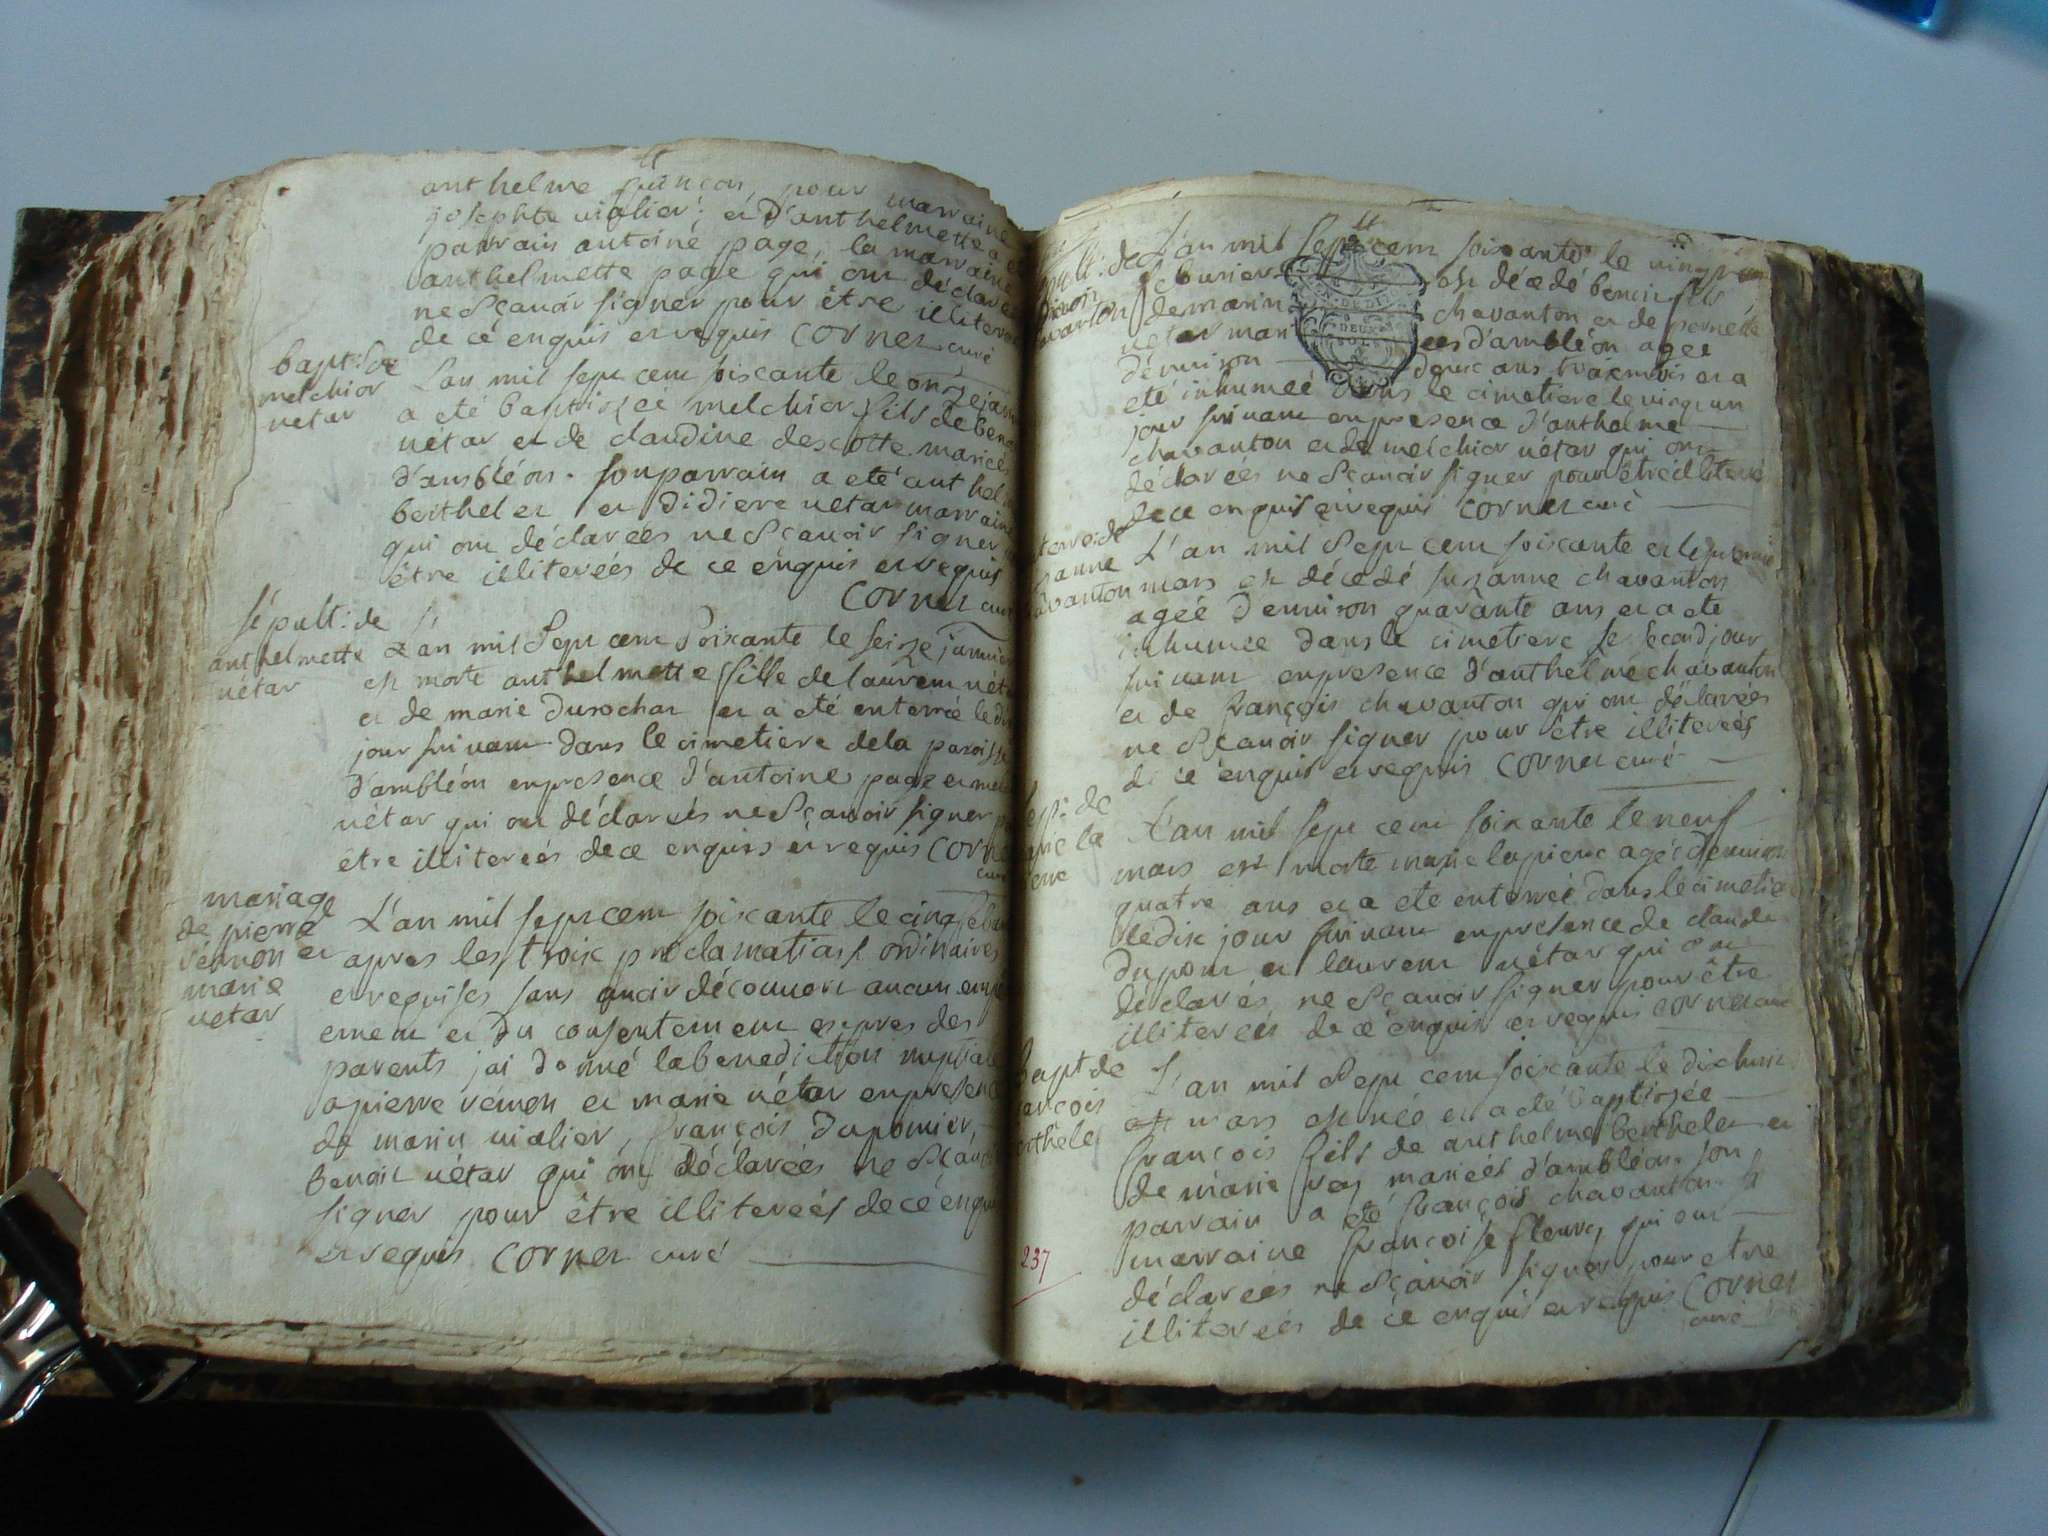 anthelme guinçon, pour marraine
josephte vialier; et d'anthelmette a
parrain antoine page, la marraine
anthelmette page qui ont déclaré
ne sçavoir signer pour être illiter
de cé enquis et requis Cornet curé
bapt: de
melchior
vétar
L'an mil sept cent soixante le onze janv
a eté baptisee melchior fils de ben
vétar et de claudine descotte mariés
d'ambléon. son parrain a eté anthel
berthelet et didiere vetar marraine
qui ont déclareés ne sçavoir signer
être illitereés de ce enquis et requis
Cornet curé
sépult: de
anthelmette
vétar
L'an mil sept cent soixante le seize janvier
est morte anthelmette fille de laurent vét
et de marie durochat et a eté enterreé le
jour suivant dans le cimetiere de la paroisse
d'ambléon en presence d'antoine page et
vétar qui ont déclarés ne sçavoir signer
être illitereés de ce enquis et requis Corne
curé
mariage
de pierre
vémon et
marie
vetar
L'an mil sept cent soixante le cinq febv
apres les troix proclamations ordinaires
et requises sans avoir découvert aucun emp
ement et du consentement expres des
parents jai donné la benediction nuptiale
a pierre vémon et marie vétar en presence
de marin vialier, françois dupomier,
benoit vétar qui ont déclareés ne sçav
signer pour être illitereés de cé enqu
et requis Cornet curé
sepult: de
benoit
chavanton
L'an mil sept cent soixante le vingt
febvrier est décedé benoit fils
de marin chavanton et de pernette
vetar mariées d'ambléon agee
d'environ deux ans trois mois et a
eté inhumeé dans le cimetiere le vingt un
jour suivant en presence d'anthelme
chavanton et de melchior vétar qui ont
déclarees ne sçavoir signer pour être illiteré
de ce enquis et requis Cornet curé
terre: de
sanne
vanton
L'an mil sept cent soixante et le premie
mars est décedé suzanne chavanton
ageé d'environ quarante ans et a eté
inhumee dans le cimetiere le second jour
suivant en presence d'anthelme chavanton
et de françois chavanton qui ont déclareés
ne sçavoir signer pour être illitereés
de ce enquis et requis Cornet curé
de
rie la
erre
L'an mil sept cent soixante le neuf
mars est morte marie lapierre ageé d'environ
quatre ans et a eté enterreé dans le cimetie
le dix jour suivant en presence de claude
dupont et laurent vétar qui ont
déclarés ne sçavoir signer pour être
illitereés de cé enquis et requis Cornet curé
bapt de
ançois
erthelet
L'an mil sept cent soixante le dixhuit
mars est néé et a eté baptisée
françois fils de anthelme berthelet et
de marie rey marieés d'ambléon. son
parrain a eté françois chavanton. sa
marraine françoise fleury qui ont
déclarees ne sçavoir signer pour être
illitereés de cé enquis et requis Cornet
curé
237